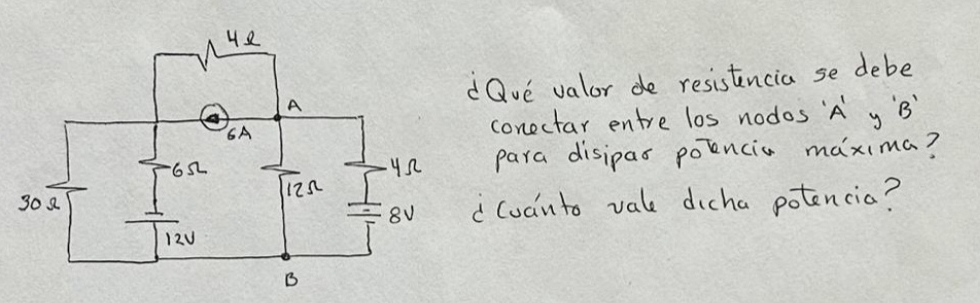 4Ω
A
6A
6Ω
4Ω
30Ω
12Ω
8V
12V
B
¿Qué valor de resistencia se debe
conectar entre los nodos 'A' y 'B'
para disipar potencia máxima?
¿Cuánto vale dicha potencia?